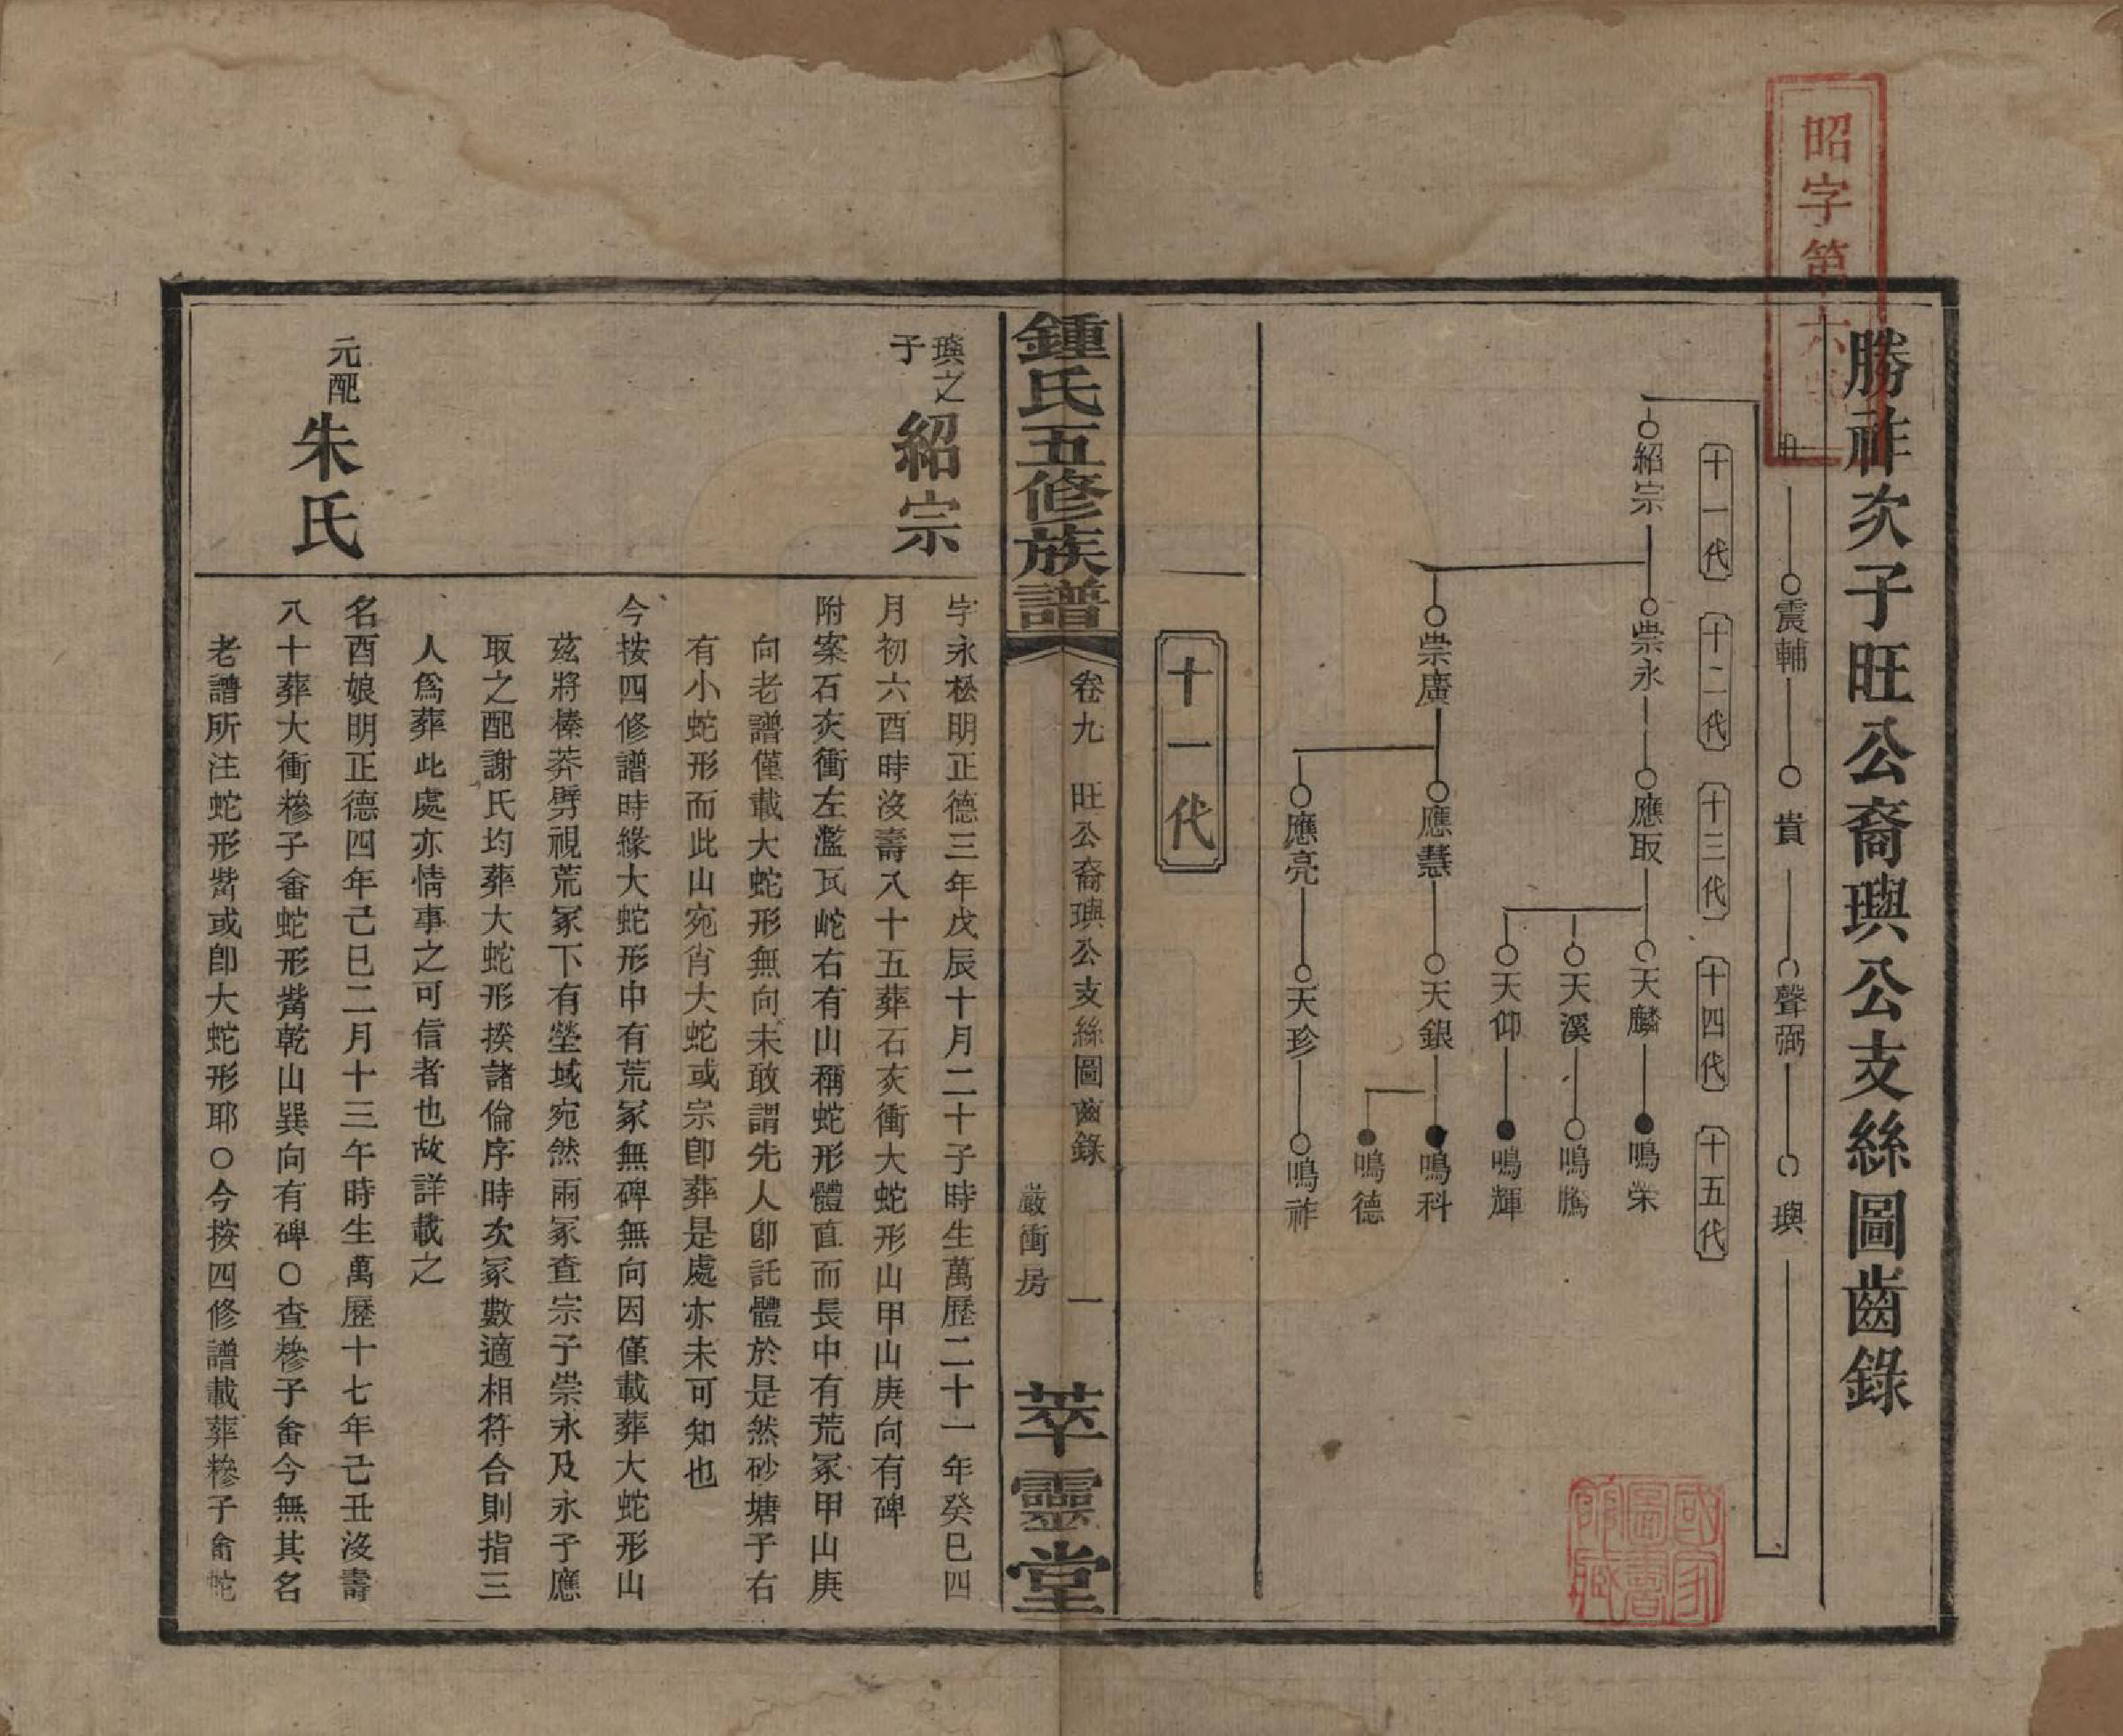 昭字第六
勝祚次子旺公裔璵公支絲圖齒錄
震輔
貴
聲弼
璵
十一代
十二代
十三代
十四代
十五代
紹宗
崇永
應取
天麟
鳴榮
天溪
鳴騰
天仰
鳴輝
崇廣
應慧
天銀
鳴科
鳴德
應亮
天珍
鳴祚
十一代
鍾氏五修族譜
卷九
旺公裔璵公支絲圖齒錄
一
巖衝房
萃靈堂
璵之子
紹宗
字永松明正德三年戊辰十月二十子時生萬歷二十一年癸巳四
月初六酉時沒壽八十五葬石灰衝大蛇形山甲山庚向有碑
附案石灰衝左濫瓦屹右有山稱蛇形體直而長中有荒冢甲山庚
向老譜僅載大蛇形無向未敢謂先人卽託體於是然砂塘子右
有小蛇形而此山宛肖大蛇或宗卽葬是處亦未可知也
今按四修譜時緣大蛇形中有荒冢無碑無向因僅載葬大蛇形山
茲將榛莽劈視荒冢下有塋域宛然兩冢查宗子崇永及永子應
取之配謝氏均葬大蛇形揆諸倫序時次冢數適相符合則指三
人爲葬此處亦情事之可信者也故詳載之
元配
朱氏
名酉娘明正德四年己巳二月十三午時生萬歷十七年己丑沒壽
八十葬大衝糝子畬蛇形觜乾山巽向有碑○查糝子畬今無其名
老譜所注蛇形觜或卽大蛇形耶○今按四修譜載葬糝子畬蛇
國家圖書館藏